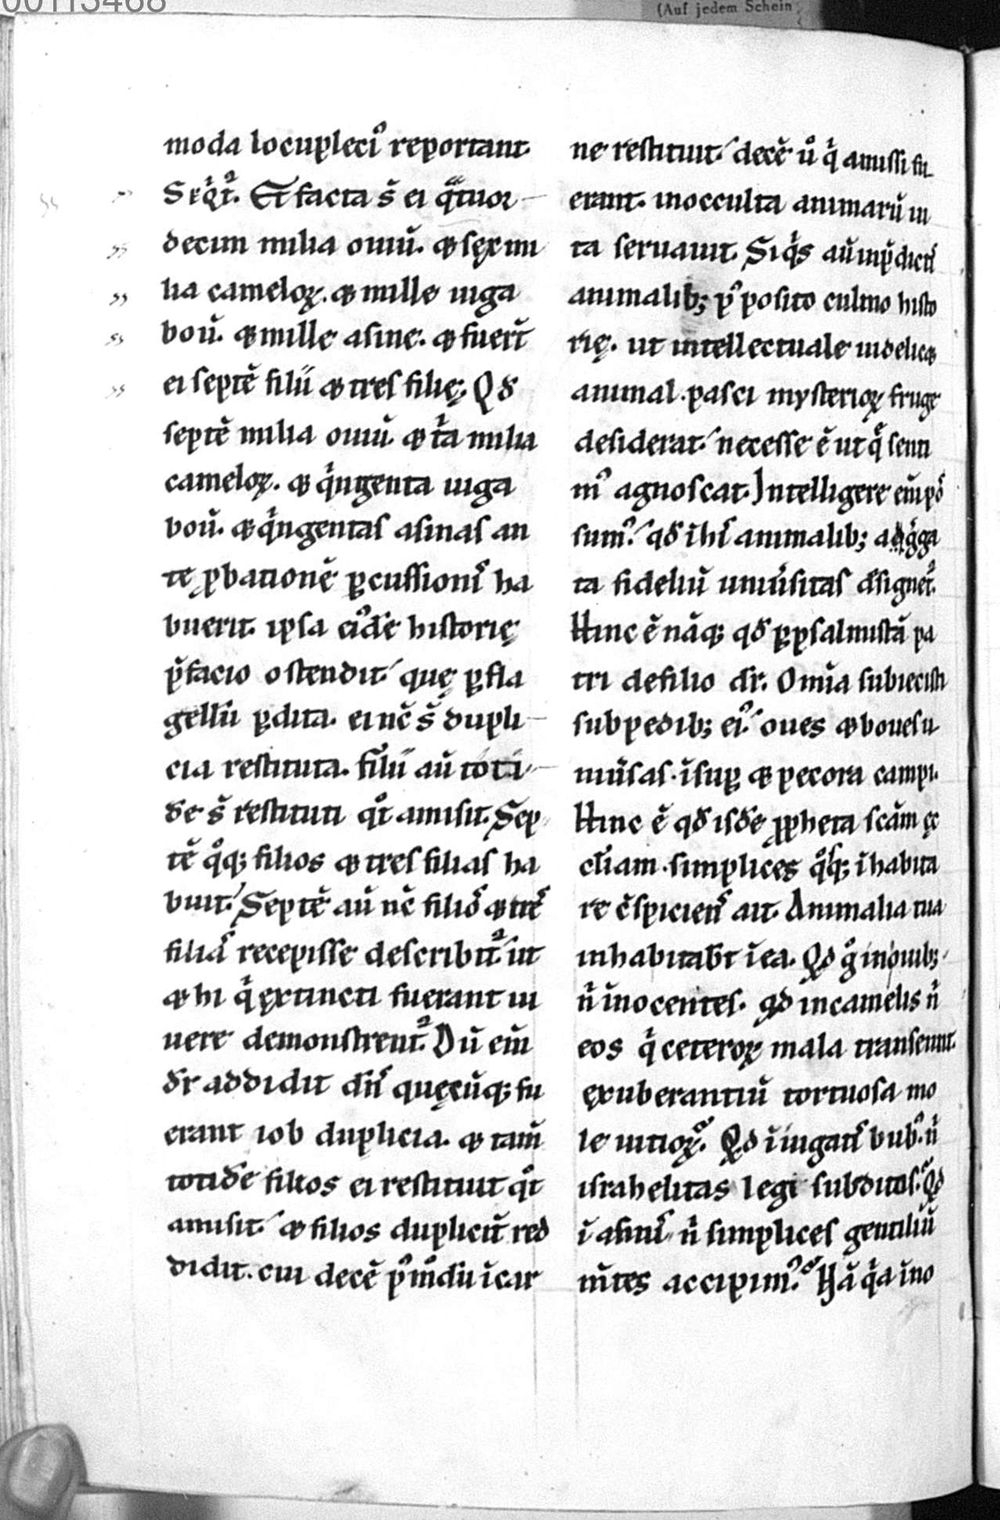 00113468
(Auf jedem Schein
moda locupleci᷒ reportant.
Seq̇t᷒. Et facta s̄ ei q̄tuor
decim milia ouiū. & sex mi
lia cameloꝝ. & mille iuga
boū. & mille asine. & fuer̄t
ei septē filii & tres filię. Qd̄
septē milia ouiū. & tⁱa milia
cameloꝝ. & qⁱngenta iuga
boū. & qⁱngentas asinas an
te ꝓbationē ꝑcussionis ha
buerit. ipsa ei᷒dē historię
p̄facio ostendit. quę ꝑ fla
gellū ꝑdita. ei nc̄ s̄ dupli
cia restituta. filii aū toti
dē s̄ restituti qͦt amisit. Sep
tē qͦq; filios & tres filias ha
buit. Septē aū nc̄ filios & tres
filias recepisse describit᷒. ut
& hi qⁱ extincti fuerant ui
uere demonstrent᷒. Dū eni
dr̄ addidit dn̄s quęcūq; fu
erant iob duplicia. & tam̄
totidē filios ei restituit qͦt
amisit. & filios duplicit̄ red
didit. cui decē p᷒modū ī car
ne restituit. decē u̇ qⁱ amissi fu
erant. in occulta animarū ui
ta seruauit. Siqⁱs aū in p̄dictis
animalib; p᷒posito culmo histo
rię. ut intellectuale uidelicet
animal. pasci mysterioꝝ fruge
desiderat. necesse ē ut qͦ senti
m᷒ agnoscat. Intelligere eni pos
sum᷒. qd̄ ī his animalib; adgⁱga
ta fideliū uniu̇sitas dēsignet᷒.
Hinc ē nāq; qd̄ ꝑ psalmistā pa
tri de filio dr̄. Omīa subiecisti
sub pedib; ei᷒. oues & boues u
niu̇sas. īsuꝑ & pecora campi.
Hinc ē qd̄ isdē ꝓpheta sc̄am ec
cl̄iam. simplices qͦsq; īhabita
re c̄spiciens ait. Animalia tua
inhabitabt̄ ī ea. Qd̄ g̊ in ouib;
nⁱ īnocentes. qd̄ in camelis nⁱ
eos qⁱ ceteroꝝ mala transeunt.
exuberantiū tortuosa mo
le uitioꝝ. Qd̄ ī iugatis bub᷒. nⁱ
israhelitas legi subditos. Qd̄
ī asinis nⁱ simplices gentiliū
m̄tes accipim᷒. Hā qⁱa īno